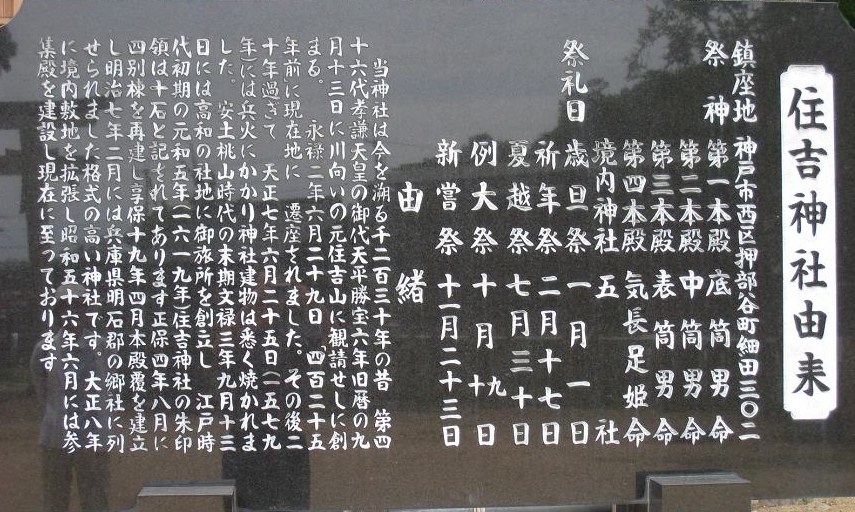 住吉神社由来
鎮座地 神戸市西区押部谷町細田三〇二
祭神 第一本殿 底筒男命
第二本殿 中筒男命
第三本殿 表筒男命
第四本殿 気長足姫命
境内神社 五社
祭礼日 歳旦祭 一月一日
祈年祭 二月十七日
夏越祭 七月三十日
例大祭 十月九十日
新嘗祭 十一月二十三日
由緒
当神社は今を溯る千二百三十年の昔 第四
十六代孝謙天皇の御代天平勝宝六年旧暦の九
月十三日に川向いの元住吉山に観請せしに創
まる。 永禄二年六月二十九日 「四百二十五
年前に現在地に 遷座されました。その後二
十年過ぎて 天正七年六月二十五日(一五七九
年)には兵火にかかり神社建物は悉く焼かれま
した。 安土桃山時代の末期文禄三年九月十三
日には高和の社地に御旅所を創立し 江戸時
代初期の元和五年(一六一九年)住吉神社の朱印
領は十石と記されてあります正保四年八月に
四別棟を再建し享保十九年四月本殿覆を建立
し明治七年二月には兵庫県明石郡の郷社に列
せられました格式の高い神社です。大正八年
に境内敷地を拡張し昭和五十六年六月には参
集殿を建設し現在に至っております